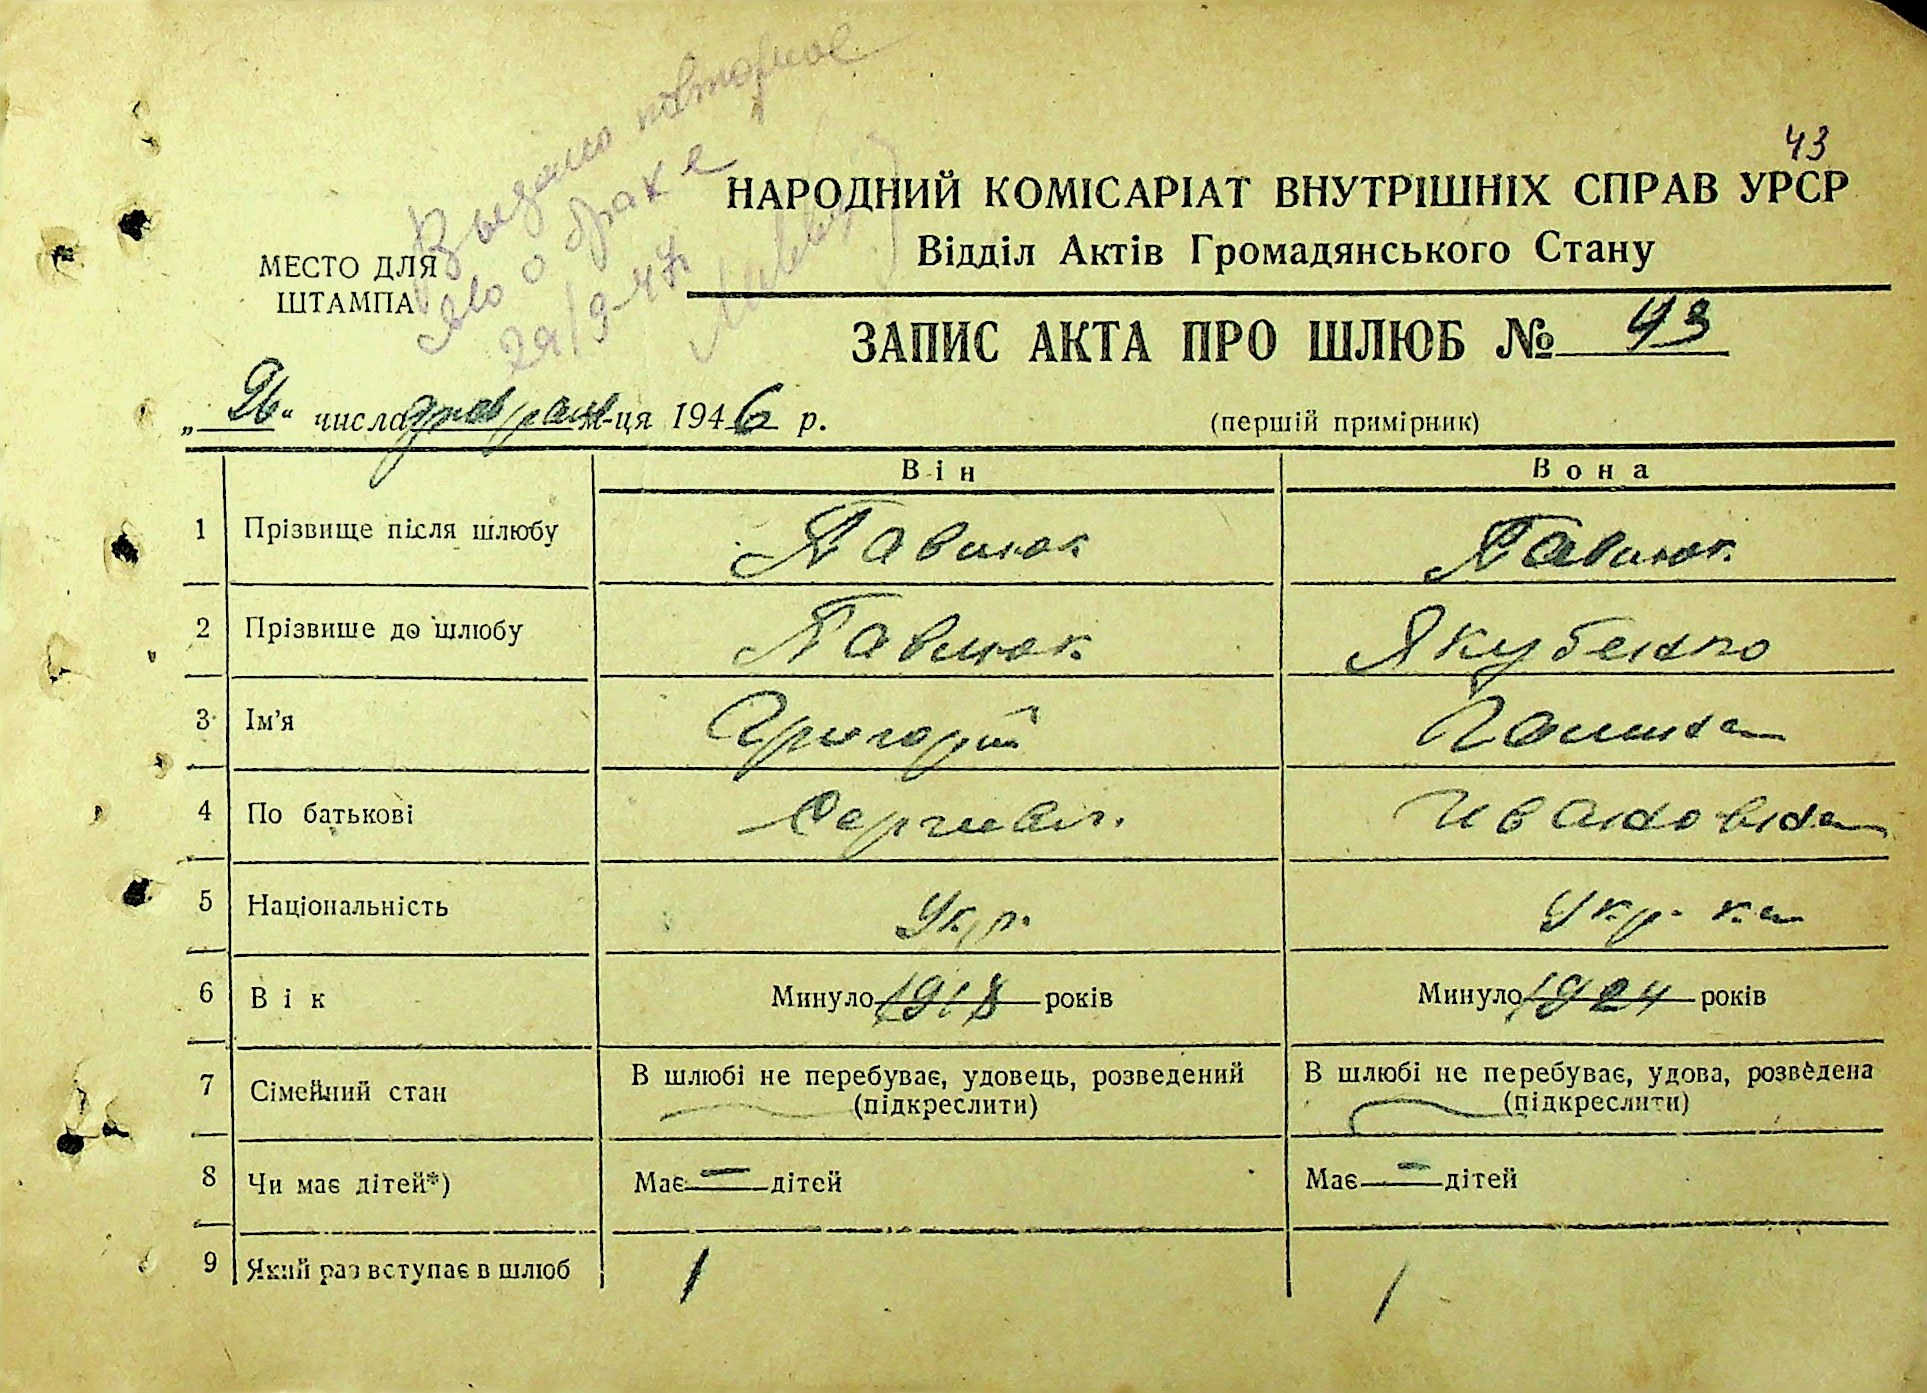 43
Выдано повторное
св-во о браке
29/9-47г.
НАРОДНИЙ КОМІСАРІАТ ВНУТРІШНІХ СПРАВ УРСР
Відділ Актів Громадянського Стану
МЕСТО ДЛЯ
ШТАМПА
ЗАПИС АКТА ПРО ШЛЮБ № 43
„26“ числа февраля м-ця 1946 р.
(перший примірник)
Він Вона
1 Прізвище після шлюбу Павлюк Павлюк
2 Прізвише до шлюбу Павлюк Якубенко
3 Ім'я Григорий Галина
4 По батькові Сергиевич Ивановна
5 Національність Укр. Укр-ка
6 Вік Минуло 1918 років Минуло 1924 років
7 Сімейний стан В шлюбі не перебуває, удовець, розведений (підкреслити) В шлюбі не перебуває, удова, розведена (підкреслити)
8 Чи має дітей*) Має — дітей Має — дітей
9 Який раз вступає в шлюб 1 1